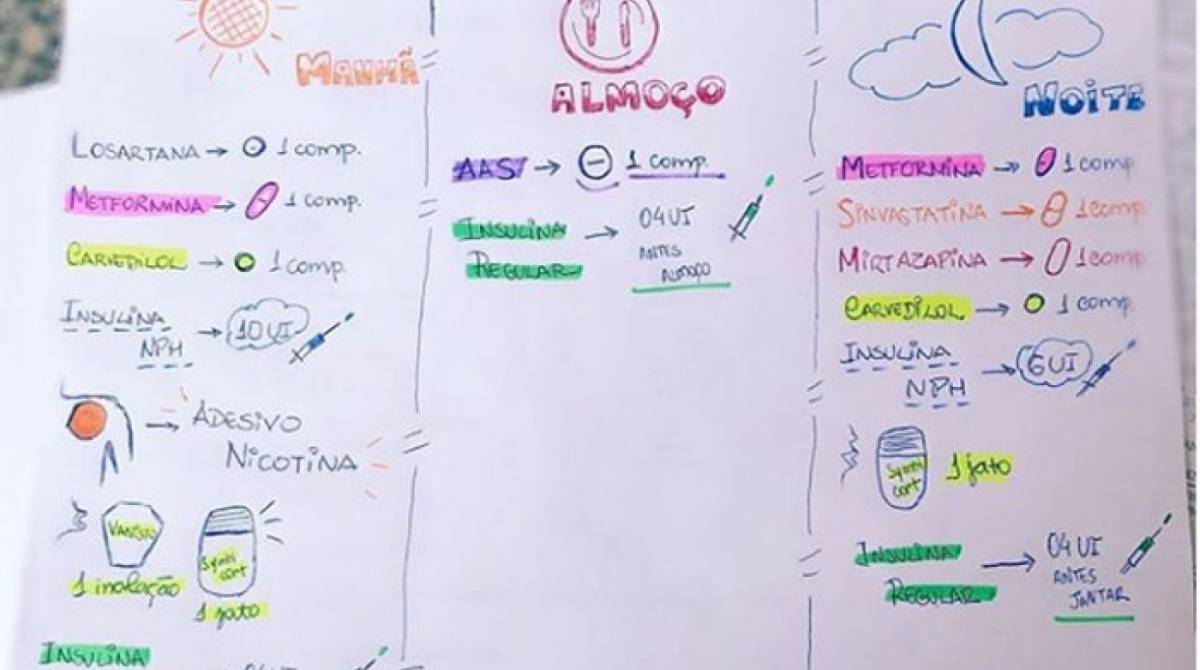 MANHÃ
LOSARTANA → 1 comp.
METFORMINA → 1 comp.
CARVEDILOL → 1 comp.
INSULINA
NPH → 10 UI
→ ADESIVO
NICOTINA
VANISTO
1 inalação
Symbi
cort
1 jato
INSULINA
04 UI
ALMOÇO
AAS → 1 comp.
INSULINA → 04 UI
REGULAR
ANTES
ALMOÇO
NOITE
METFORMINA → 1 comp
SINVASTATINA → 1 comp.
MIRTAZAPINA → 1 comp
CARVEDILOL → 1 comp.
INSULINA
NPH → 6UI
Symbi
cort
1 jato
INSULINA → 04 UI
REGULAR
ANTES
JANTAR